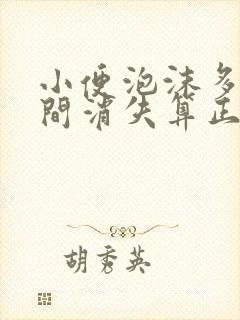 小便泡沫多
間消失算正
胡秀英